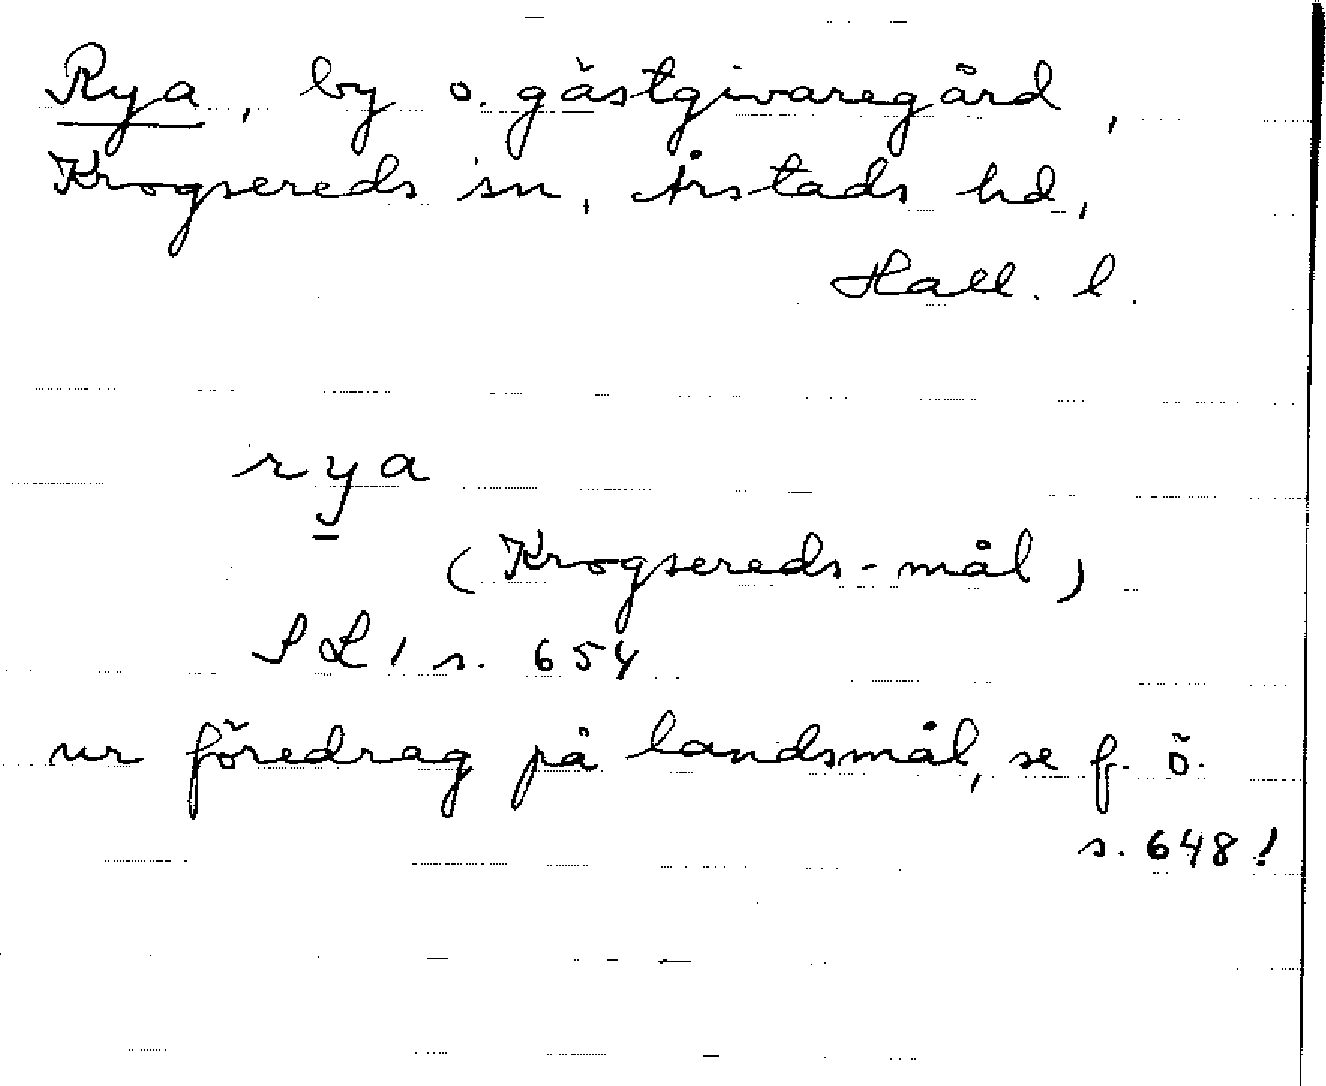 Rya, by o. gästgivaregård,
Krogsereds sn, Årstads hd,
Hall. l.
rya
(Krogsereds-mål)
SL 1 s. 654
ur föredrag på landsmål, se f. ö.
s. 648!